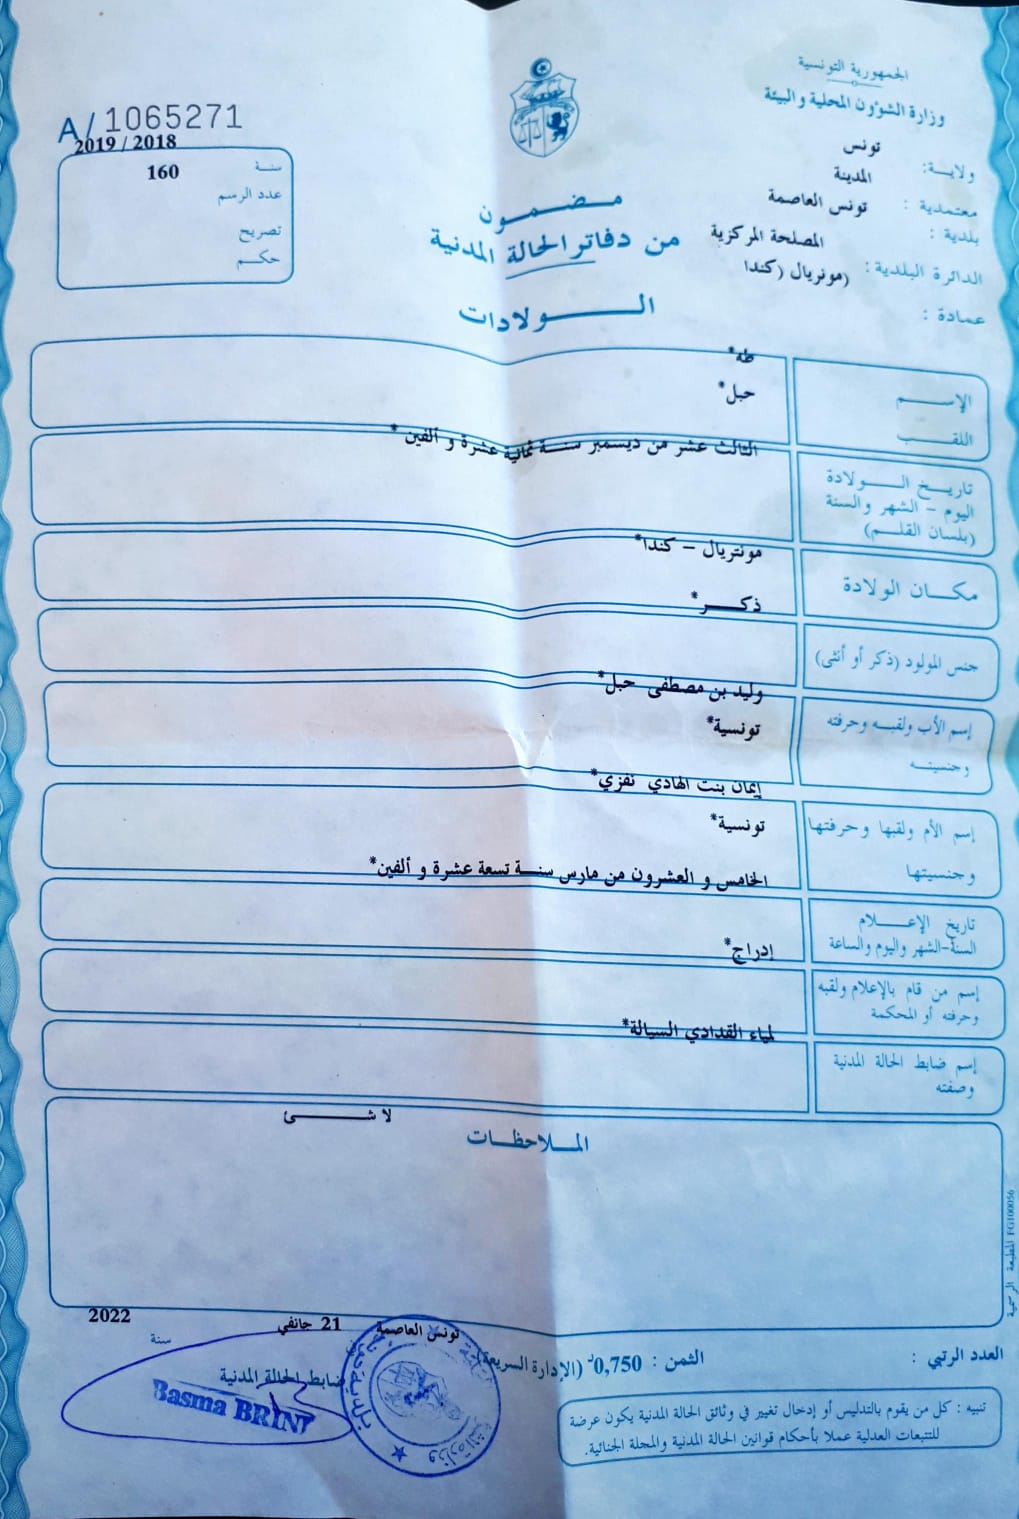 الجمهورية التونسية
وزارة الشؤون المحلية والبيئة
A/1065271
2019 / 2018
سنة
160
عدد الرسم
تصريح
حكم
تونس
ولاية:
المدينة
معتمدية :
تونس العاصمة
بلدية :
المصلحة المركزية
الدائرة البلدية:
(مونريال (كندا
عمادة :
مضمون
من دفاتر الحالة المدنية
الولادات
طه*
الإسم
حبل*
اللقب
الثالث عشر من ديسمبر سنة ثمانية عشرة و ألفين *
تاريخ الولادة
اليوم - الشهر والسنة
(بلسان القلم)
مونتريال - كندا*
مكان الولادة
ذكر*
جنس المولود (ذكر أو أنثى)
وليد بن مصطفى حبل*
إسم الأب ولقبه وحرفته
تونسية*
وجنسيته
إيمان بنت الهادي نفزي*
إسم الأم ولقبها وحرفتها
تونسية*
وجنسيتها
الخامس و العشرون من مارس سنة تسعة عشرة و ألفين*
تاريخ الإعلام
السنة-الشهر واليوم والساعة
إدراج*
إسم من قام بالإعلام ولقبه
وحرفته أو المحكمة
لمياء القدادي السيالة*
إسم ضابط الحالة المدنية
وصفته
لا شئ
الملاحظات
المطبعة الرسمية FG100056
تونس العاصمة
21 جانفي
2022
سنة
ضابط الحالة المدنية
Basma BRINI
العدد الرتبي :
الثمن : 0,750د (الإدارة السريعة)
تنبيه : كل من يقوم بالتدليس أو إدخال تغيير في وثائق الحالة المدنية يكون عرضة
للتتبعات العدلية عملا بأحكام قوانين الحالة المدنية والمجلة الجنائية.